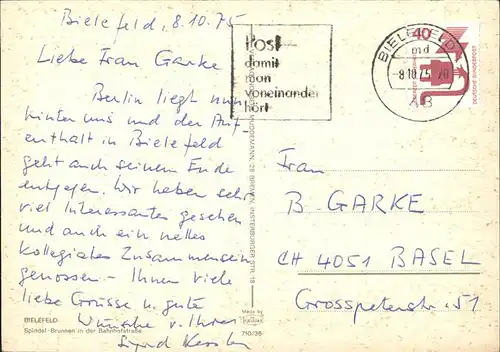 Bielefeld, 8.10.75
Liebe Frau Garke
Berlin liegt nun
hinter uns und der Auf-
enthalt in Bielefeld
geht auch seinem Ende
entgegen. Wir haben sehr
viel Interessantes gesehen
und auch ein nettes
kollegiales Zusammensein
genossen. – Ihnen viele
liebe Grüsse u. gute
Wünsche v. Ihrer
Sigrid
BIELEFELD
Spindel-Brunnen in der Bahnhofstraße
710/36
28 BREMEN, INSTERBURGER STR. 18
Post -
damit
man
voneinander
hört
BIELEFELD
md
-8.10.75-20
40
DEUTSCHE BUNDESPOST
Frau
B. GARKE
CH 4051 BASEL
Grosspeterstr. 51